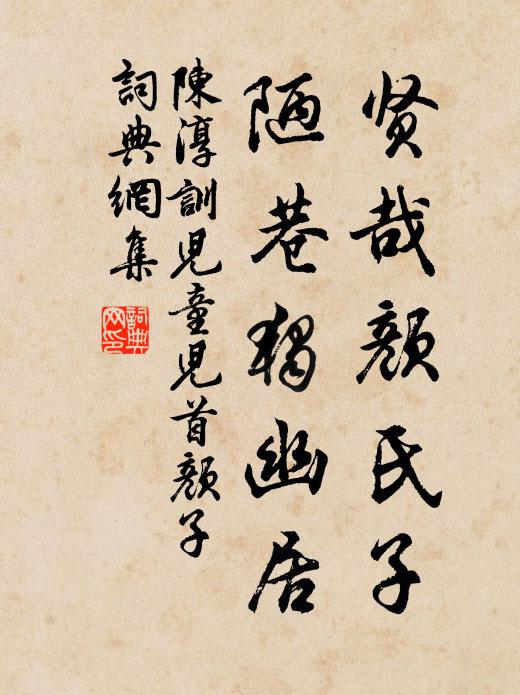 贤哉颜氏子
陋巷独幽居
陳淳訓児童児首顔子
詞典網集
詞典
网印